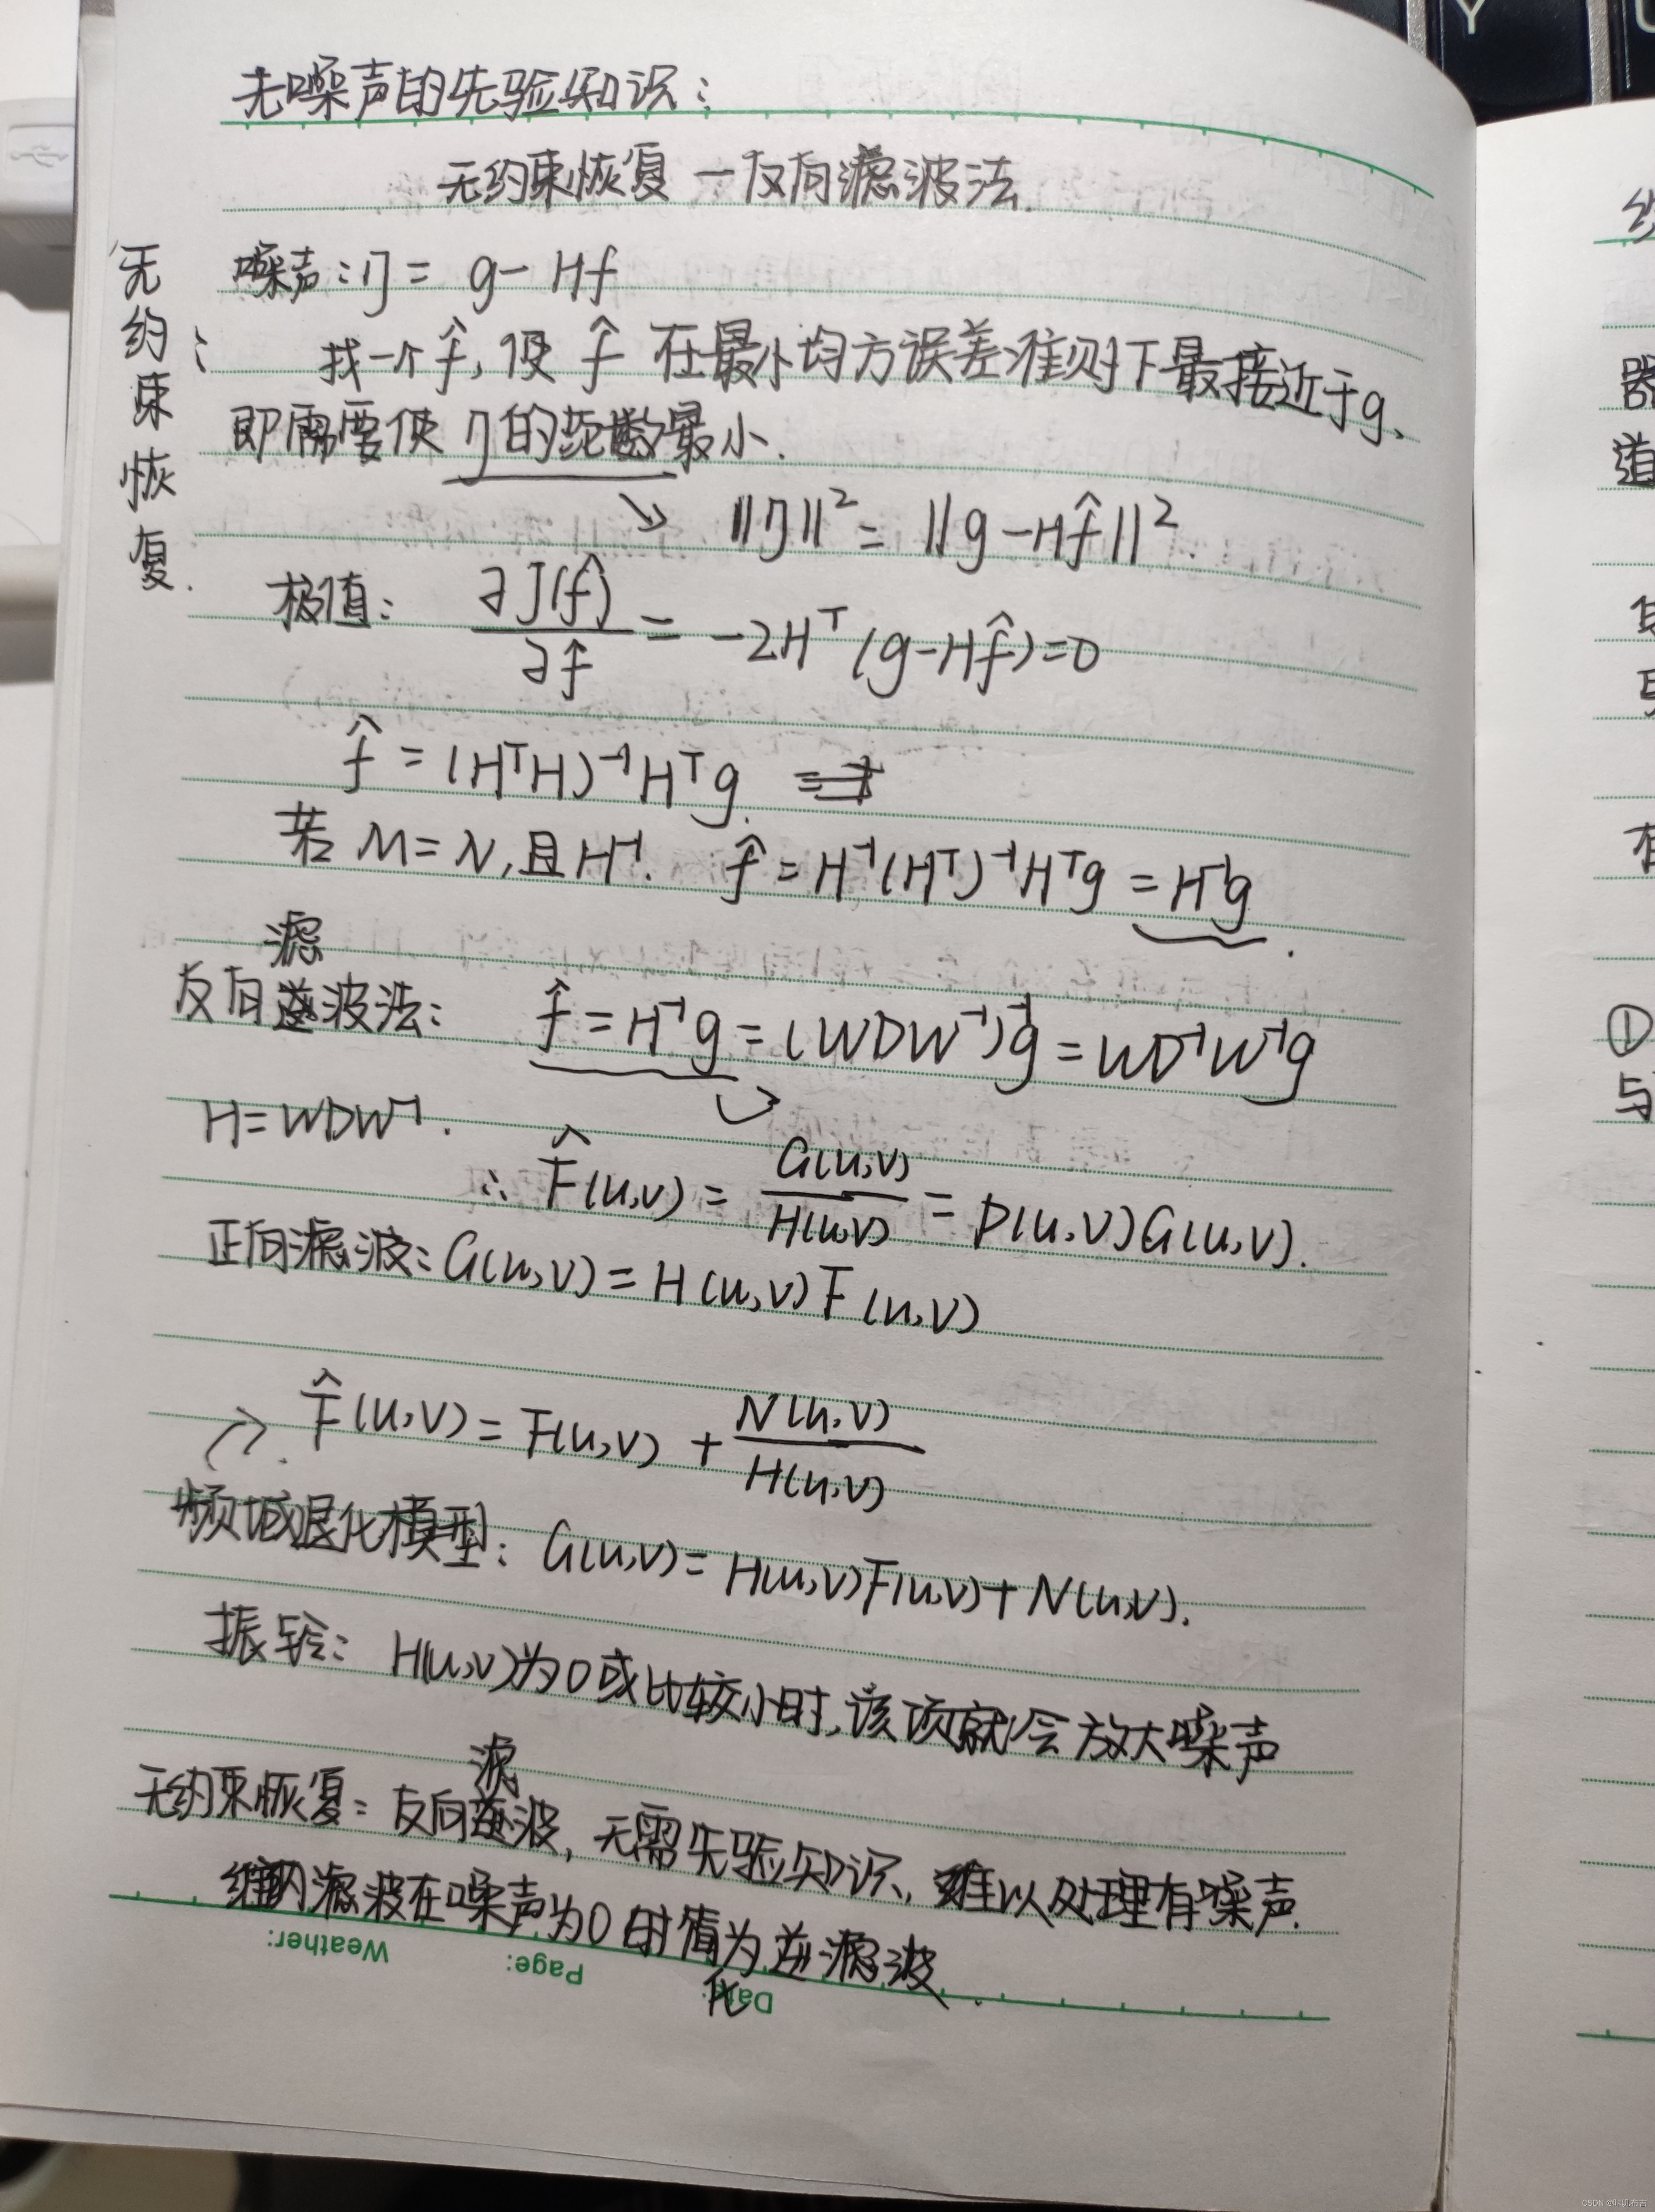 无噪声的先验知识:
无约束恢复—反向滤波法.
无约束恢复:
噪声:η = g - Hf
找一个f̂, 使 f̂ 在最小均方误差准则下最接近于g、
即需要使 η的范数最小.
↘ ||η||² = ||g - Hf̂||².
极值: ∂J(f̂)/∂f̂ = -2Hᵀ(g-Hf̂)=0
f̂ = (HᵀH)⁻¹Hᵀg.
若 M=N, 且H⁻¹. f̂ = H⁻¹(Hᵀ)⁻¹Hᵀg = H⁻¹g.
反向滤波法: f̂ = H⁻¹g = (WDW⁻¹)⁻¹g = WD⁻¹W⁻¹g
H=WDW⁻¹.
∴ F̂(u,v) = G(u,v)/H(u,v) = P(u,v)G(u,v).
正向滤波: G(u,v) = H(u,v)F(u,v)
F̂(u,v) = F(u,v) + N(u,v)/H(u,v)
频域退化模型: G(u,v)= H(u,v)F(u,v)+N(u,v).
振铃: H(u,v)为0或比较小时,该项就会放大噪声
无约束恢复: 反向滤波, 无需先验知识, 难以处理有噪声.
维纳滤波在噪声为0时退化为逆滤波.
Weather:
Page:
Date:
Y
U
器
道
有
①
与
CSDN @